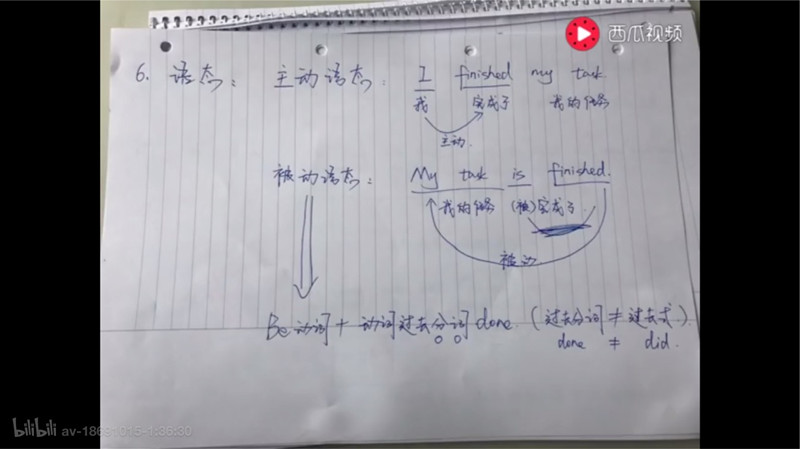 西瓜视频
6. 语态： 主动语态： I finished my task
我 完成了 我的任务
主动.
被动语态： My task is finished.
我的任务 (被)完成了.
被动
Be动词 + 动词过去分词 done. (过去分词 ≠ 过去式).
done ≠ did.
bilibili